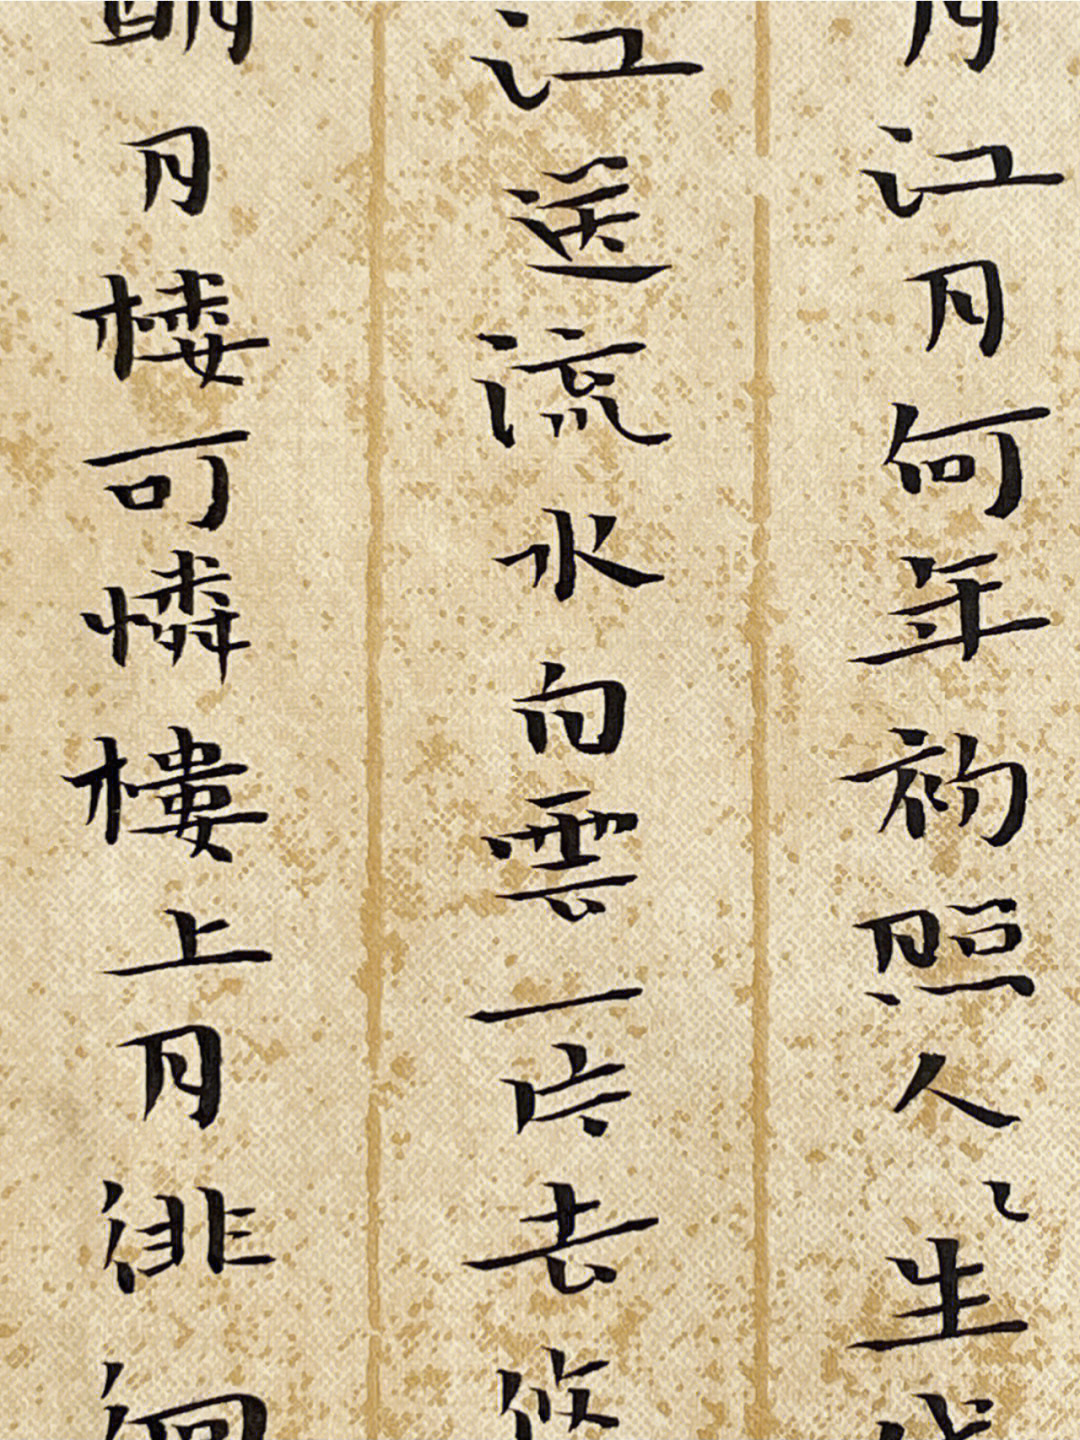 月江月何年初照人〻生代
江送流水白雲一片去悠
明月楼可憐樓上月徘徊